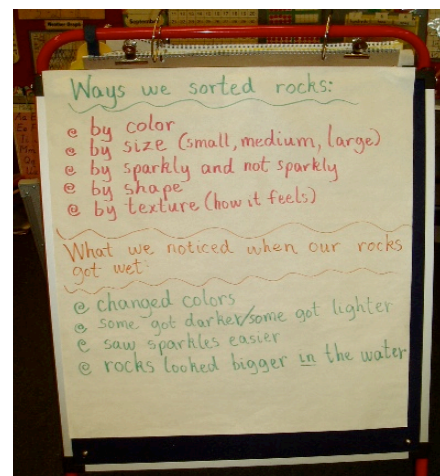 Weather Graph
September
Ways we sorted rocks:
by color
by size (small, medium, large)
by sparkly and not sparkly
by shape
by texture (how it feels)
What we noticed when our rocks
got wet:
changed colors
some got darker/some got lighter
saw sparkles easier
rocks looked bigger in the water